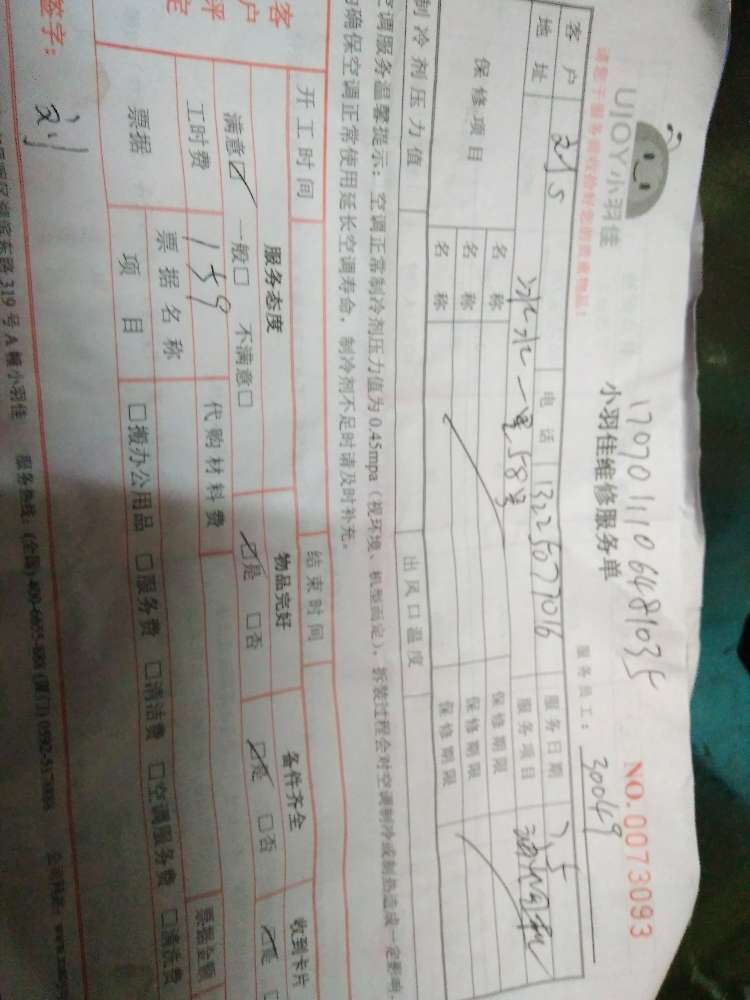 17070111106481035
UJOY小羽佳
小羽佳维修服务单
NO.0073093
请您于服务前收拾好您的贵重物品!
服务员工: 30049
客户 刘S 电话 13225077016 服务日期 75
地址 冰水一里58号 服务项目 油烟机
保修项目 名称 保修期限
名称 保修期限
名称 保修期限
制冷剂压力值 出风口温度
空调服务温馨提示:空调正常制冷剂压力值为0.45mpa(视环境、机型而定),拆装过程会对空调制冷或制热造成一定影响,
确保空调正常使用延长空调寿命,制冷剂不足时请及时补充。
开工时间 结束时间
客户评定
服务态度 物品完好 备件齐全 收到卡片
满意☑ 一般□ 不满意□ ☑是 □否 ☑是 □否 ☑是
工时费 159 代购材料费 票据金额
票据 票据名称
项目 □搬办公用品 □服务费 □清洁费 □空调服务费 □清洗费
签字: 刘
东路319号A幢小羽佳 服务热线:(全国)